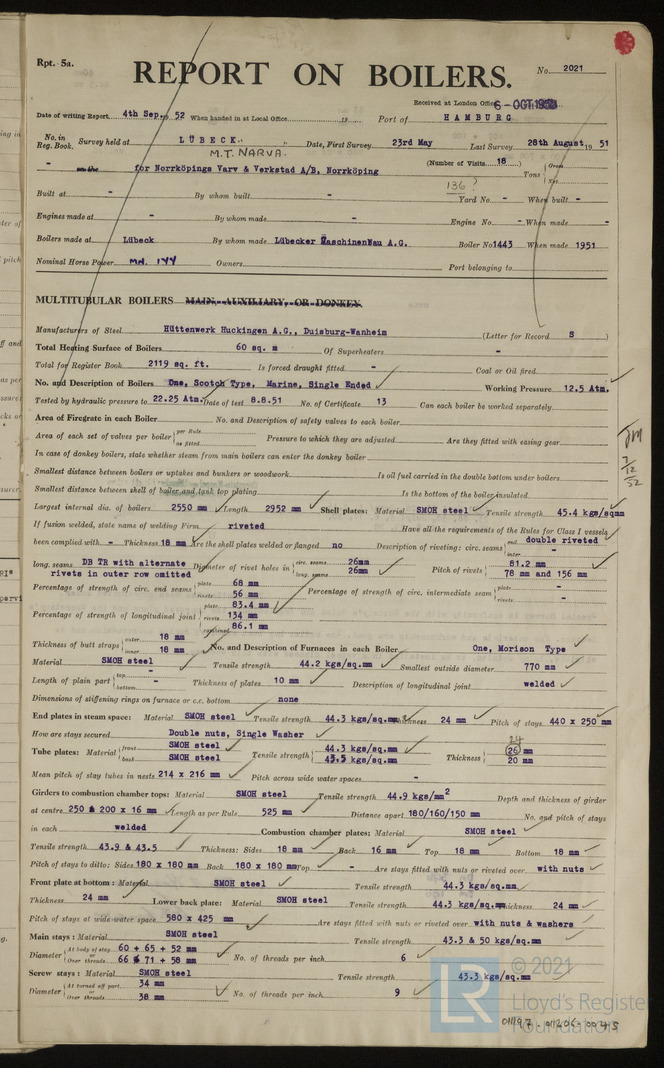 Rpt. 5a.
REPORT ON BOILERS.
No. 2021
Received at London Office 6 - OCT 1952
Date of writing Report 4th Sep. 19 52 When handed in at Local Office 19 Port of HAMBURG
No. in Reg. Book. Survey held at LÜBECK Date, First Survey 23rd May Last Survey 28th August 19 51
M.T. NARVA.
(Number of Visits 18)
- on the for Norrköpings Varv & Verkstad A/B, Norrköping Tons { Gross Net
136 ?
Built at - By whom built - Yard No. - When built -
Engines made at - By whom made - Engine No. - When made -
Boilers made at Lübeck By whom made Lübecker Maschinenbau A.G. Boiler No 1443 When made 1951
Nominal Horse Power MN. 144 Owners Port belonging to
MULTITUBULAR BOILERS MAIN, AUXILIARY, OR DONKEY.
Manufacturers of Steel Hüttenwerk Huckingen A.G., Duisburg-Wanheim (Letter for Record S)
Total Heating Surface of Boilers 60 sq. m Of Superheaters -
Total for Register Book 2119 sq. ft. Is forced draught fitted - Coal or Oil fired
No. and Description of Boilers One, Scotch Type, Marine, Single Ended Working Pressure 12.5 Atm.
Tested by hydraulic pressure to 22.25 Atm. Date of test 8.8.51 No. of Certificate 13 Can each boiler be worked separately
Area of Firegrate in each Boiler No. and Description of safety valves to each boiler
Area of each set of valves per boiler { per Rule as fitted Pressure to which they are adjusted Are they fitted with easing gear
In case of donkey boilers, state whether steam from main boilers can enter the donkey boiler
Smallest distance between boilers or uptakes and bunkers or woodwork Is oil fuel carried in the double bottom under boilers
Smallest distance between shell of boiler and tank top plating Is the bottom of the boiler insulated
Largest internal dia. of boilers 2550 mm Length 2952 mm Shell plates: Material SMOH steel Tensile strength 45.4 kgs/sqmm
If fusion welded, state name of welding Firm riveted Have all the requirements of the Rules for Class I vessels
been complied with - Thickness 18 mm Are the shell plates welded or flanged no Description of riveting: circ. seams { end double riveted inter -
long. seams DB TR with alternate rivets in outer row omitted Diameter of rivet holes in { circ. seams 26mm long. seams 26mm Pitch of rivets { 81.2 mm 78 mm and 156 mm
Percentage of strength of circ. end seams { plate 68 mm rivets 56 mm Percentage of strength of circ. intermediate seam { plate - rivets -
Percentage of strength of longitudinal joint { plate 83.4 mm rivets 134 mm combined 86.1 mm
Thickness of butt straps { outer 18 mm inner 18 mm No. and Description of Furnaces in each Boiler One, Morison Type
Material SMOH steel Tensile strength 44.2 kgs/sq.mm Smallest outside diameter 770 mm
Length of plain part { top - bottom - Thickness of plates 10 mm Description of longitudinal joint welded
Dimensions of stiffening rings on furnace or c.c. bottom none
End plates in steam space: Material SMOH steel Tensile strength 44.3 kgs/sq.mm Thickness 24 mm Pitch of stays 440 x 250 mm
How are stays secured Double nuts, Single Washer
24
Tube plates: Material { front SMOH steel back SMOH steel Tensile strength { 44.3 kgs/sq.mm 43.5 kgs/sq.mm Thickness { 26 mm 20 mm
Mean pitch of stay tubes in nests 214 x 216 mm Pitch across wide water spaces -
Girders to combustion chamber tops: Material SMOH steel Tensile strength 44.9 kgs/mm² Depth and thickness of girder
at centre 250 & 200 x 16 mm Length as per Rule 525 mm Distance apart 180/160/150 mm No. and pitch of stays
in each welded Combustion chamber plates: Material SMOH steel
Tensile strength 43.9 & 43.5 Thickness: Sides 18 mm Back 16 mm Top 18 mm Bottom 18 mm
Pitch of stays to ditto: Sides 180 x 180 mm Back 180 x 180 mm Top - Are stays fitted with nuts or riveted over with nuts
Front plate at bottom: Material SMOH steel Tensile strength 44.3 kgs/sq.mm
Thickness 24 mm Lower back plate: Material SMOH steel Tensile strength 44.3 kgs/sq.mm Thickness 24 mm
Pitch of stays at wide water space 580 x 425 mm Are stays fitted with nuts or riveted over with nuts & washers
Main stays: Material SMOH steel Tensile strength 43.3 & 50 kgs/sq.mm
Diameter { At body of stay, or Over threads 60 + 65 + 52 mm 66 & 71 + 58 mm No. of threads per inch 6
Screw stays: Material SMOH steel Tensile strength 43.3 kgs/sq.mm
Diameter { At turned off part, or Over threads 34 mm 38 mm No. of threads per inch 9
JM
7/12/52
LR
© 2021
Lloyd's Register
Foundation
011197-011206-0045